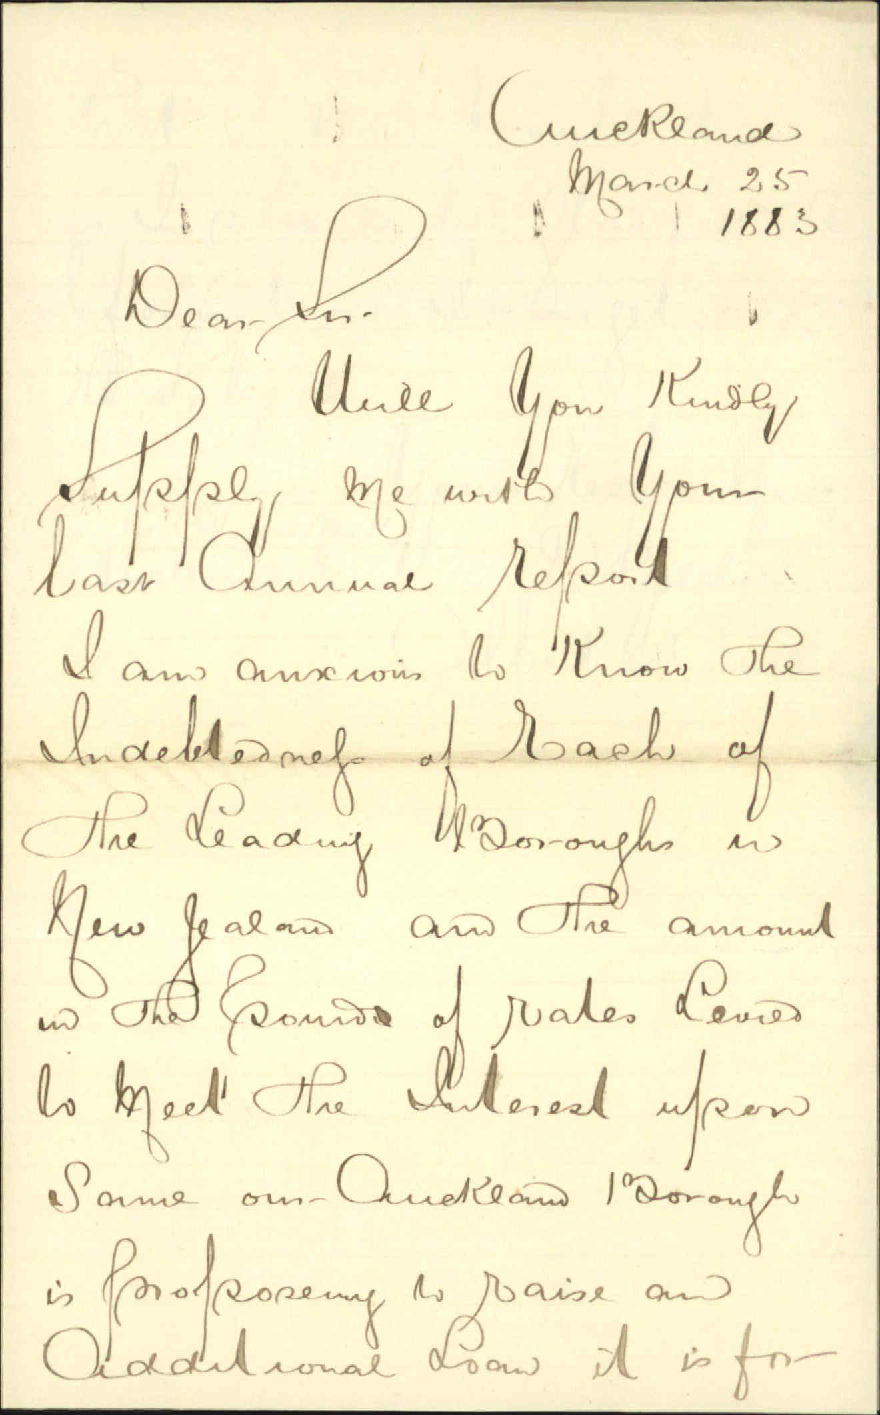 Auckland
March 25
1883
Dear Sir
Will You Kindly
Supply me with Your
last Annual report
I am anxious to Know The
Indebtedness of Each of
The Leading Boroughs in
New Zealand and The amount
in The pounds of rates Levied
to Meet The Interest upon
Same our Auckland Borough
is proposeing to raise an
Additional Loan it is for